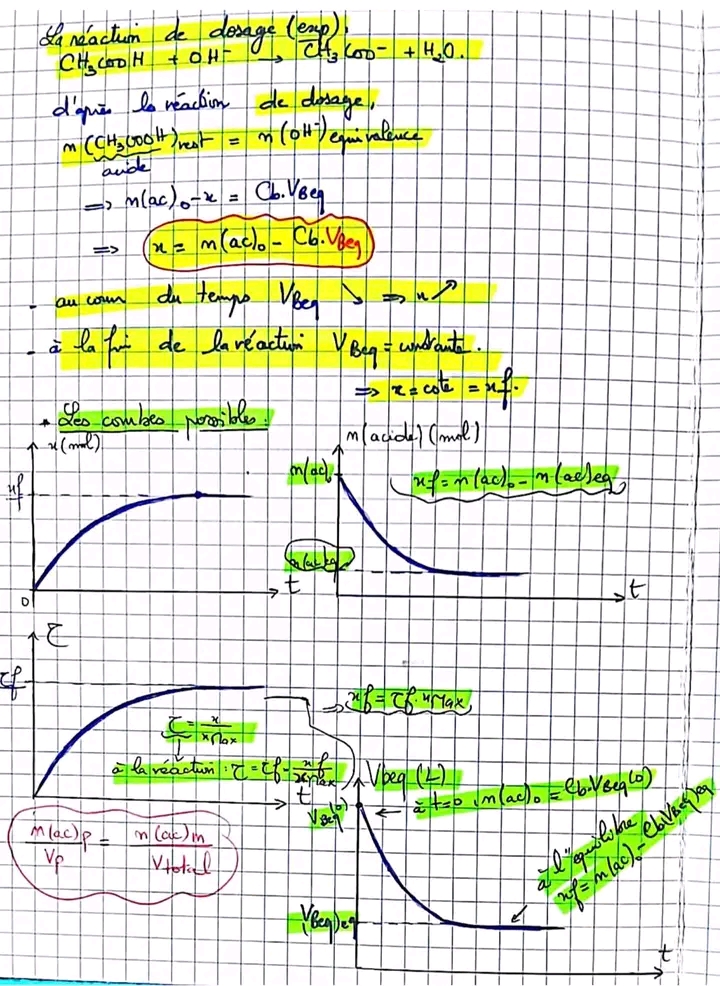 La réaction de dosage (exp).
CH₃COOH + OH⁻ → CH₃COO⁻ + H₂O.
d'après la réaction de dosage,
n(CH₃COOH)rest = n(OH⁻)equivalence
acide
=> n(ac)₀ - x = Cb.VBeq
=> x = n(ac)₀ - Cb.VBeq
- au cour du temps VBeq ↘ => x ↗
- à la fin de la réaction VBeq = constante.
=> x = cste = xf.
* Les courbes possibles:
x(mol)
n(acide)(mol)
xf
n(ac)₀
xf = n(ac)₀ - n(ac)eq
n(ac)eq
0
t
t
τ
τf
=> xf = τf.xMax
τ = x/xMax
à la réaction: τ = τf = xf/xMax
t
Vbeq (L)
VBeq(0)
← à t=0, n(ac)₀ = Cb.VBeq(0)
n(ac)p/Vp = n(ac)m/Vtotal
à l'équilibre
xf = n(ac)₀ - Cb(VBeq)eq
(VBeq)eq
t